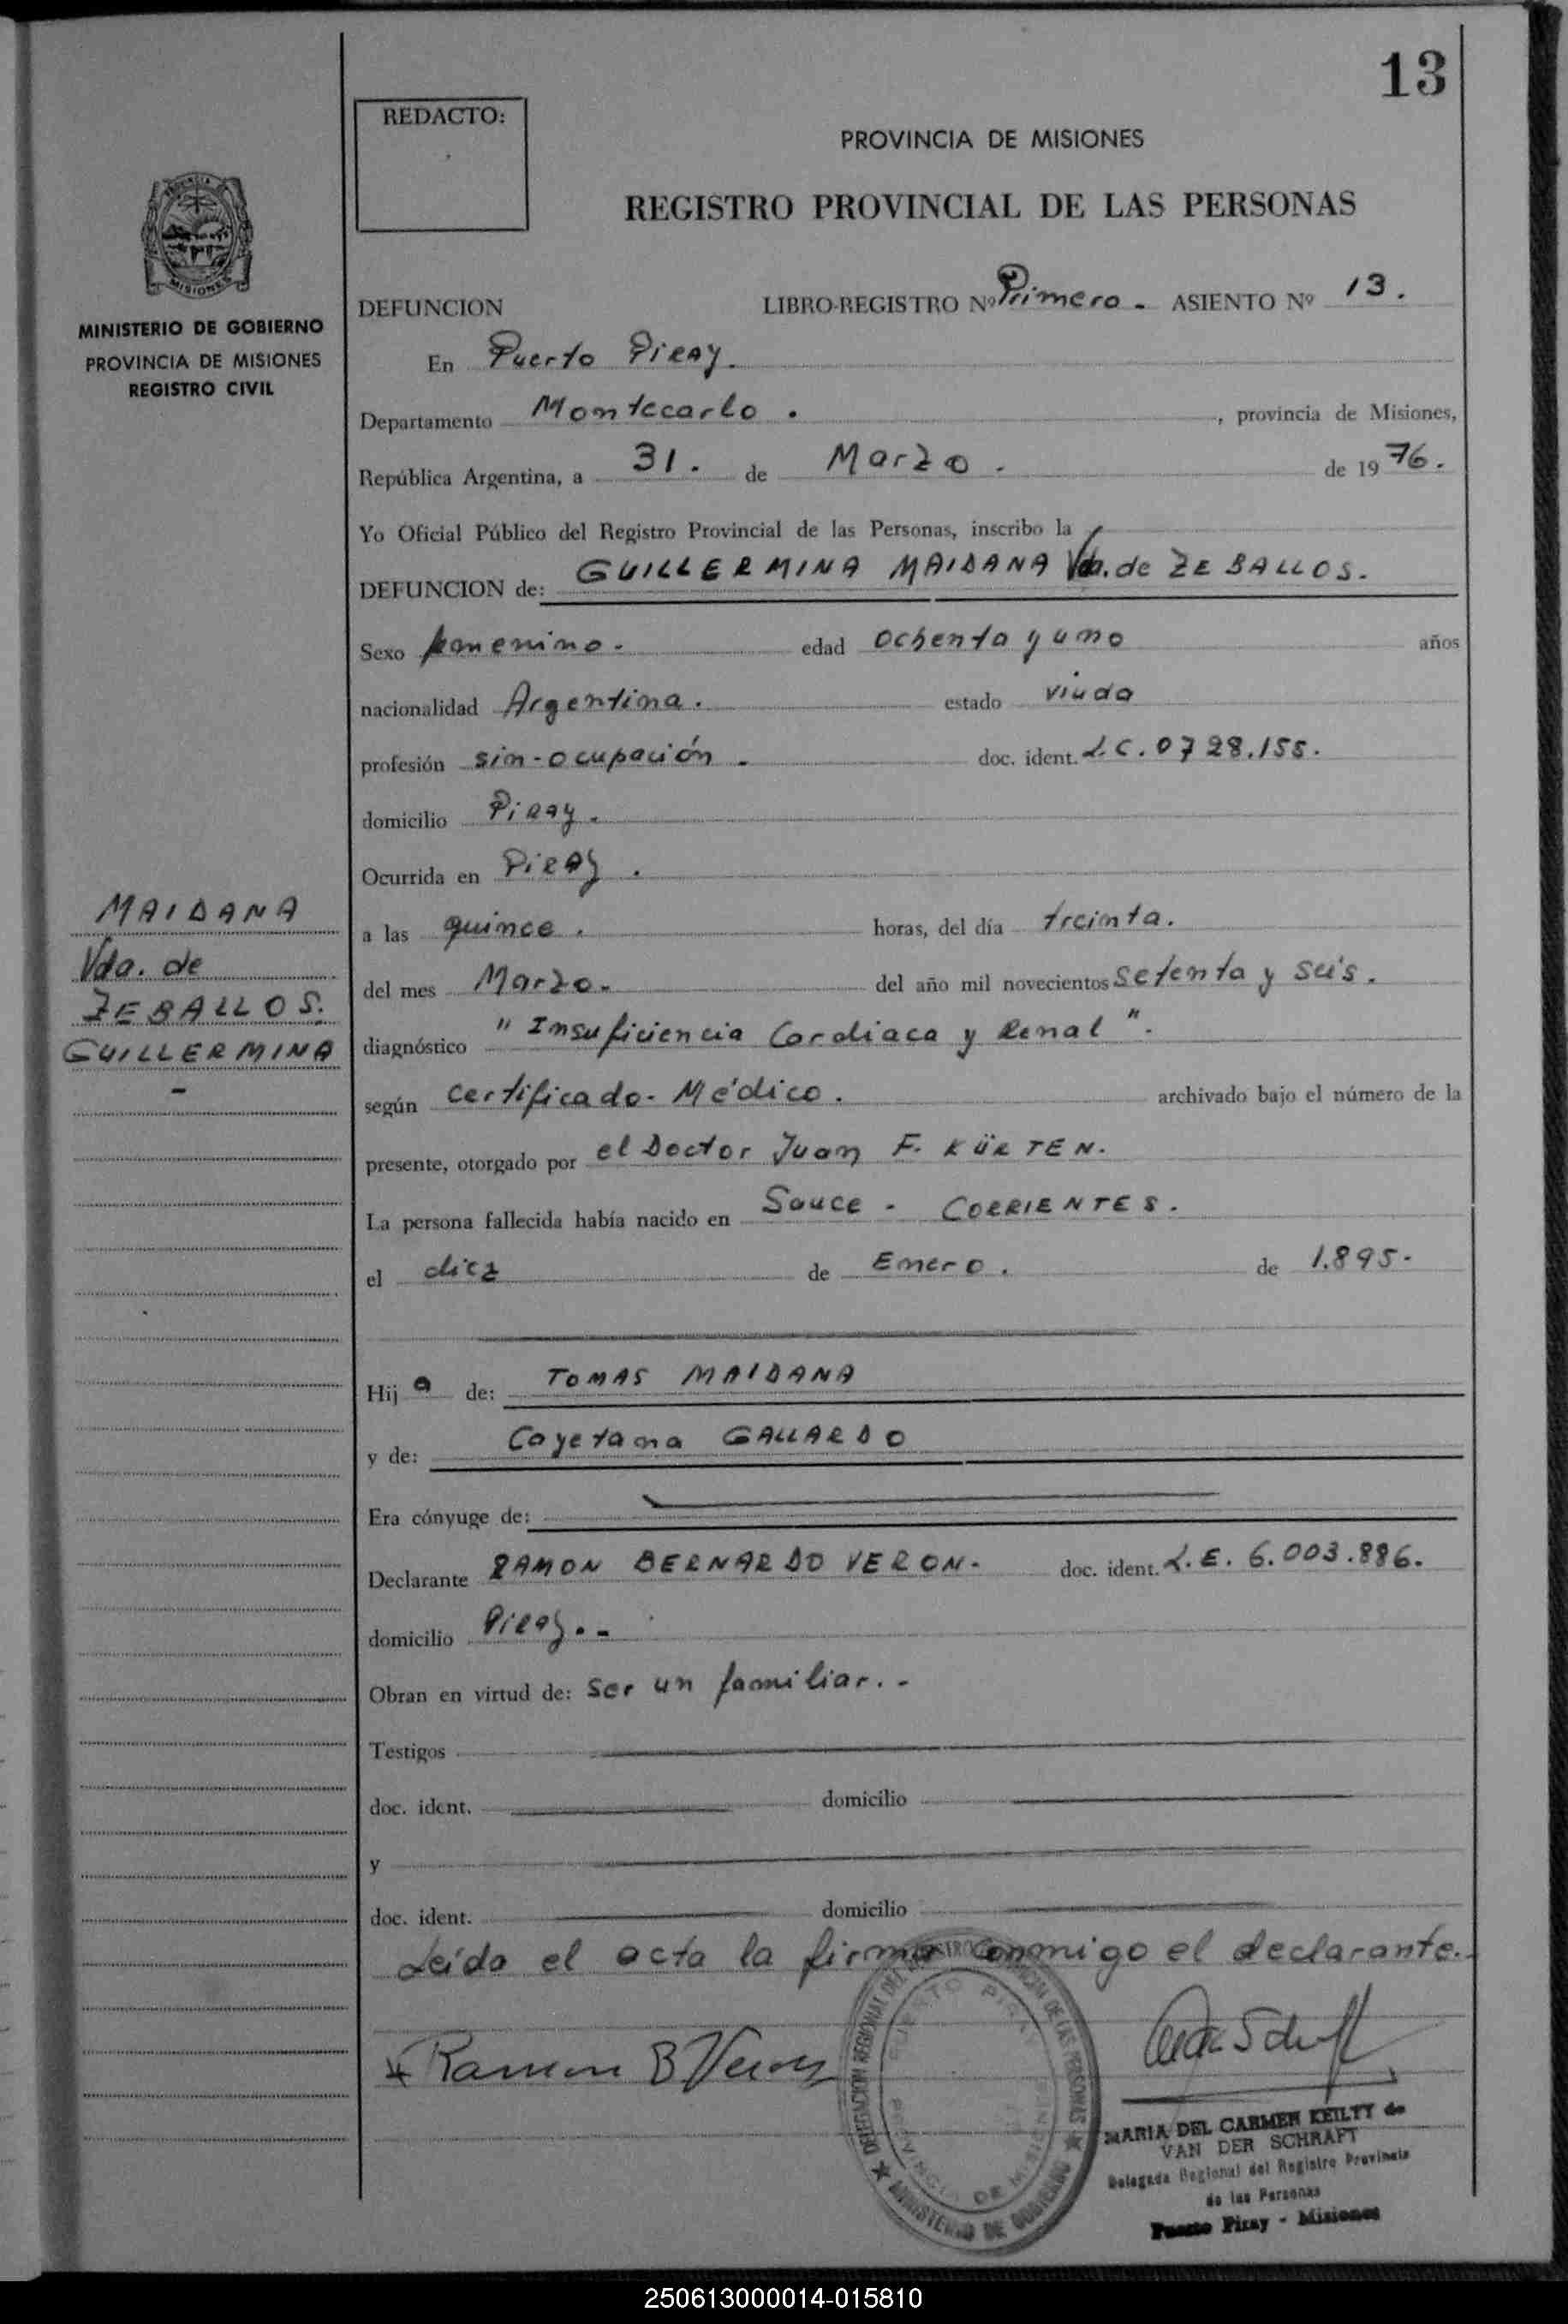 13
REDACTO:
PROVINCIA DE MISIONES
REGISTRO PROVINCIAL DE LAS PERSONAS
MISIONES
MINISTERIO DE GOBIERNO
PROVINCIA DE MISIONES
REGISTRO CIVIL
DEFUNCION LIBRO-REGISTRO Nº Primero - ASIENTO Nº 13.
En Puerto Piray.
Departamento Montecarlo . , provincia de Misiones,
República Argentina, a 31. de Marzo . de 19 76.
Yo Oficial Público del Registro Provincial de las Personas, inscribo la
DEFUNCION de: GUILLERMINA MAIDANA Vda. de ZEBALLOS.
Sexo femenino. edad ochenta y uno años
nacionalidad Argentina. estado viuda
profesión sin-ocupación . doc. ident. L.C. 0728.155.
domicilio Piray.
Ocurrida en Piray .
a las quince . horas, del día treinta.
del mes Marzo. del año mil novecientos setenta y seis.
diagnóstico "Insuficiencia Cardiaca y Renal".
según certificado-Médico. archivado bajo el número de la
presente, otorgado por el Doctor Juan F. KÜRTEN.
La persona fallecida había nacido en Sauce - CORRIENTES.
el diez de Enero. de 1.895.
Hija de: TOMAS MAIDANA
y de: Cayetana GALLARDO
Era cónyuge de:
Declarante RAMON BERNARDO VERON- doc. ident. L.E. 6.003.886.
domicilio Piray.-
Obran en virtud de: ser un familiar.-
Testigos
doc. ident. domicilio
y
doc. ident. domicilio
Leída el acta la firma conmigo el declarante.
Ramon B Veron
MAIDANA
Vda. de
ZEBALLOS.
GUILLERMINA
-
DELEGACION REGIONAL DEL REGISTRO PROVINCIAL DE LAS PERSONAS
PUERTO PIRAY
PROVINCIA DE MISIONES
MINISTERIO DE GOBIERNO
MARIA DEL CARMEN KEILTY de
VAN DER SCHRAFT
Delegada Regional del Registro Provincia
de las Personas
Puerto Piray - Misiones
250613000014-015810